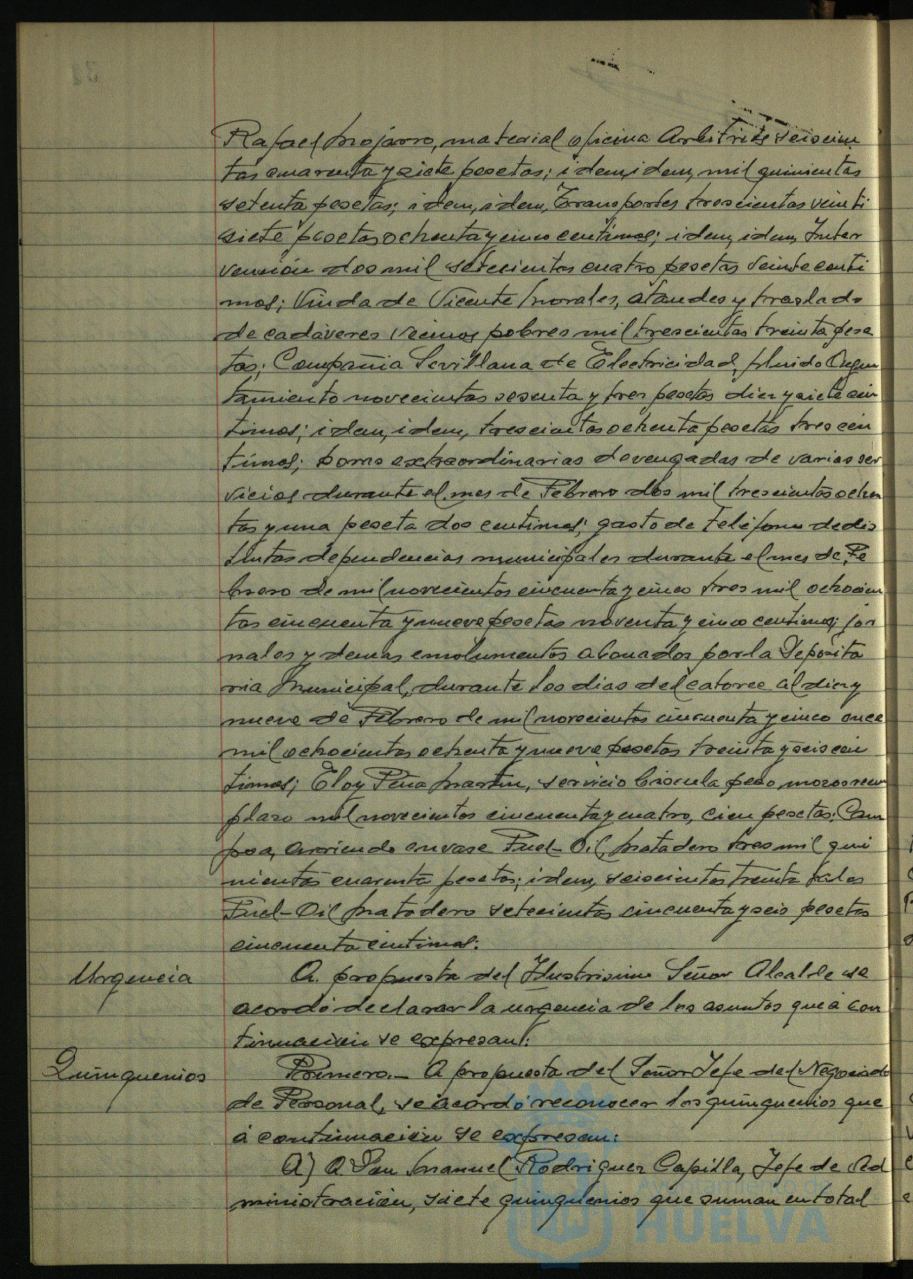 Rafael Mojarro, material oficina Arbitrios seiscien
tas cuarenta y siete pesetas; idem, idem, mil quinientas
setenta pesetas; idem, idem, Transportes trescientas veinti
siete pesetas ochenta y cinco centimos; idem, idem, Inter
vención dos mil setecientas cuatro pesetas veinte centi
mos; Viuda de Vicente Morales, ataudes y traslado
de cadáveres vecinos pobres mil trescientas treinta pese
tas; Compañia Sevillana de Electricidad, fluido Ayun
tamiento novecientas sesenta y tres pesetas diez y siete cén
timos; idem, idem, trescientas ochenta pesetas tres cen
timos; horas extraordinarias devengadas de varios ser
vicios durante el mes de Febrero dos mil trescientas ochen
ta y una peseta dos centimos; gasto de Teléfono de dis
tintas dependencias municipales durante el mes de Fe
brero de mil novecientos cincuenta y cinco tres mil ochocien
tas cincuenta y nueve pesetas noventa y cinco centimos; jor
nales y demas emolumentos abonados por la Deposita
ria Municipal, durante los dias del catorce al diez y
nueve de Febrero de mil novecientos cincuenta y cinco once
mil ochocientas ochenta y nueve pesetas treinta y seis cen
timos; Eloy Peña Martin, servicio báscula peso mozos reem
plazo mil novecientos cincuenta y cuatro, cien pesetas; Cam
psa, arriendo envase Fuel-Oil Matadero tres mil qui
nientas cuarenta pesetas; idem, seiscientos treinta kilos
Fuel-Oil Matadero setecientas cincuenta y seis pesetas
cincuenta centimos.
Urgencia A propuesta del Ilustrisimo Señor Alcalde se
acordó declarar la urgencia de los asuntos que á con
tinuación se expresan:
Quinquenios Primero.- A propuesta del Señor Jefe del Negociado
de Personal, se acordó reconocer los quinquenios que
á continuación se expresan:
A) A Don Manuel Rodriguez Capilla, Jefe de Ad
ministración, siete quinquenios que suman en total
HUELVA